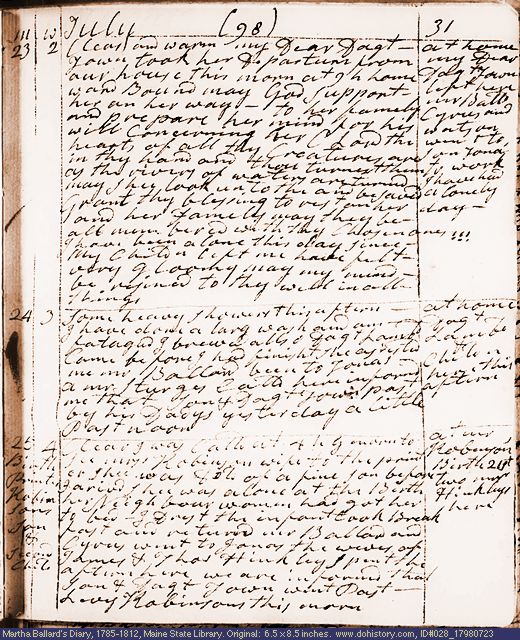 July (98) 31
m w
23 2 Clear and warm my Dear Dagt
Town took her Departure from
our house this morn at 9h home
ward Bound may God support
her on her way to her family
and prepare her mind for his
will Concerning her
hearts of all thy Creatures are
in thy hand and thou turnest them
as the rivers of waters are turned
may they look unto thee and be saved
Grant thy blessing to rest on her
and her family may they be
all numbered with thy Chosen ones
I have been alone this day since
my Child left me have felt
very gloomy may my mind
be resined to thy will in all
things
at home
my Dear
Dagt Town
left here
mr Balld
Cyrus and
watson
went to
son Jonas
to work
have had
a lonely
day
24 3 some heavy showers this aftern
I have done a larg wash and am
fatagud I brewed allso Dagt Lamb
came before I had finisht she assisted
me mr Ballard been to Jonas
a mr Sturges Calld here informd
me that son & Dagt Town past
by his Dadys yesterday a little
past noon
at home
Dagt
Lambd
Child n
here this
aftern
25 4 Clear I was Calld at 4 h g morn to
see mrs Robinson wife to the printer
she was of a fine son before
I arivd she was alone at the Birth
her Neighbour women had got her
to bed I Drest the infant took Break
fast and returnd mr Ballard and
Cyrus went to Jonas the wives of
James & Hinkley spent the
aftern here we are informd that
son & Dagt Town went Past
Levy Robinsons this morn
Birth
Robin
sons
son
at mr
Robinsons
Birth 20th
two mrs
Hinkleys
here
Martha Ballard's Diary, 1785-1812, Maine State Library. Original: 6.5 x 8.5 inches. www.dohistory.com, ID#028_17980723